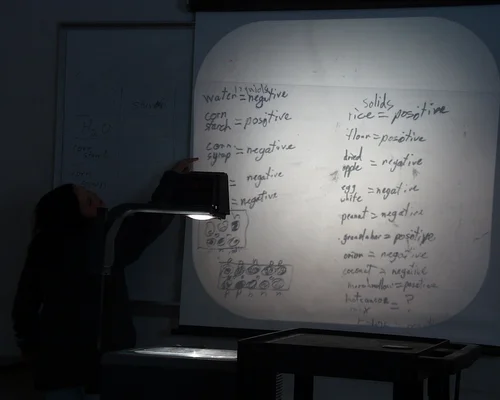 liquids
water = negative
corn
starch = posotive
corn
syrup = negative
= negative
= negative
solids
rice = posotive
flour = posotive
dried
apple = negative
egg
white = negative
peanut = negative
= posotive
onion = negative
coconut = negative
marshmallow = posotive
= ?
mix